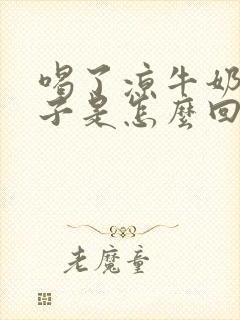 喝了凉牛奶
子是怎麼回
老魔童